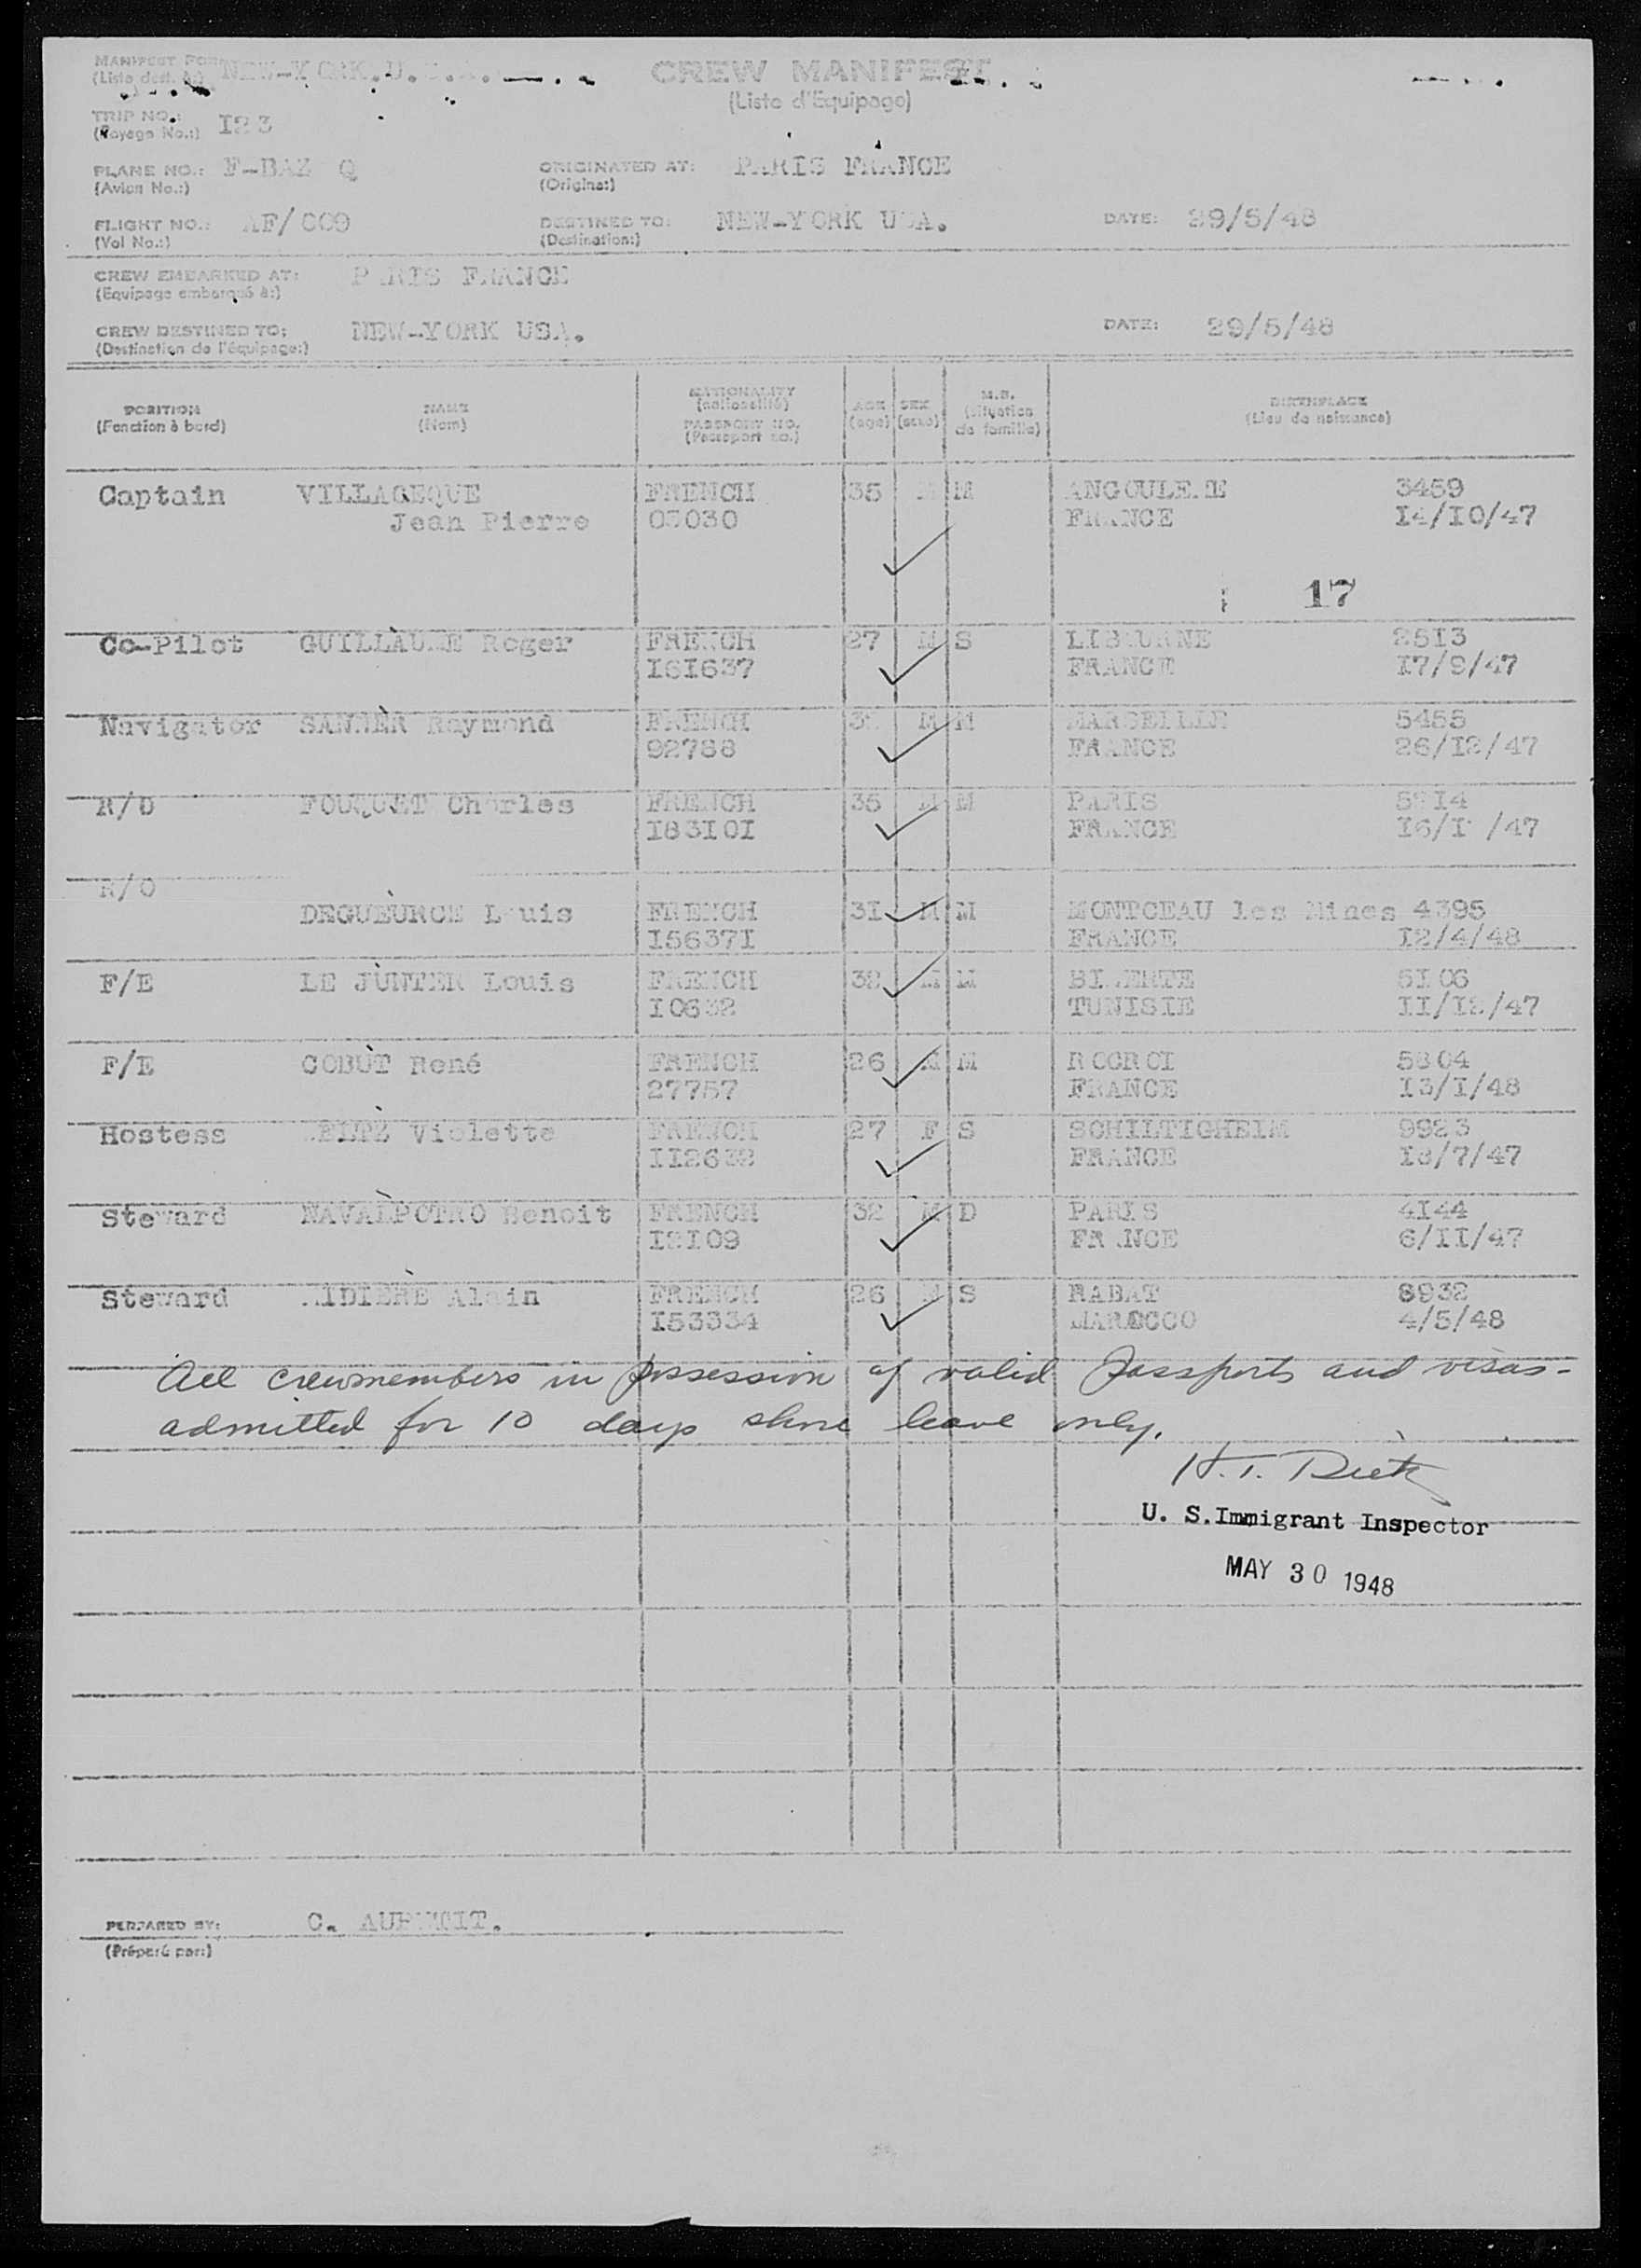 MANIFEST FOR NEW-YORK.U.S.A. CREW MANIFEST
(Liste dest. à:) (Liste d'Equipage)
TRIP NO.: I23
(Voyage No.:)
PLANE NO.: F-BAZ Q ORIGINATED AT: PARIS FRANCE
(Avion No.:) (Origine:)
FLIGHT NO.: AF/009 DESTINED TO: NEW-YORK USA. DATE: 29/5/48
(Vol No.:) (Destination:)
CREW EMBARKED AT: PARIS FRANCE
(Equipage embarqué à:)
CREW DESTINED TO: NEW-YORK USA. DATE: 29/5/48
(Destination de l'équipage:)
POSITION NAME NATIONALITY AGE SEX M.S. BIRTHPLACE
(Fonction à bord) (Nom) (nationalité) (age) (sexe) (situation de famille) (Lieu de naissance)
PASSPORT NO.
(Passeport no.)
Captain VILLACEQUE FRENCH 35 M M ANGOULEME 3459
Jean Pierre 05030 FRANCE I4/I0/47
17
Co-Pilot GUILLAUME Roger FRENCH 27 M S LIBOURNE 2513
I6I637 FRANCE I7/9/47
Navigator Raymond FRENCH M M MARSEILLE 5455
92788 FRANCE 26/I2/47
R/O FOUQUET Charles FRENCH 35 M M PARIS
I83I0I FRANCE /47
R/O
DEGUEURCE Louis FRENCH 3I M M MONTCEAU les Mines 4395
I5637I FRANCE I2/4/48
F/E LE JUNTER Louis FRENCH 32 M M BIZERTE 5I06
I0632 TUNISIE II/I2/47
F/E COBUT René FRENCH 26 M M ROCROI 5804
27757 FRANCE I3/I/48
Hostess Violette FRENCH 27 F S SCHILTIGHEIM 9923
II2632 FRANCE I8/7/47
Steward NAVALPOTRO Benoit FRENCH 32 M D PARIS 4I44
I2I09 FRANCE 6/II/47
Steward Alain FRENCH 26 M S RABAT 8932
I53334 MAROCCO 4/5/48
All crewmembers in possession of valid passports and visas -
admitted for 10 days shore leave only.
H.T.
U. S. Immigrant Inspector
MAY 30 1948
PERPARED BY: C.
(Préparé par:)